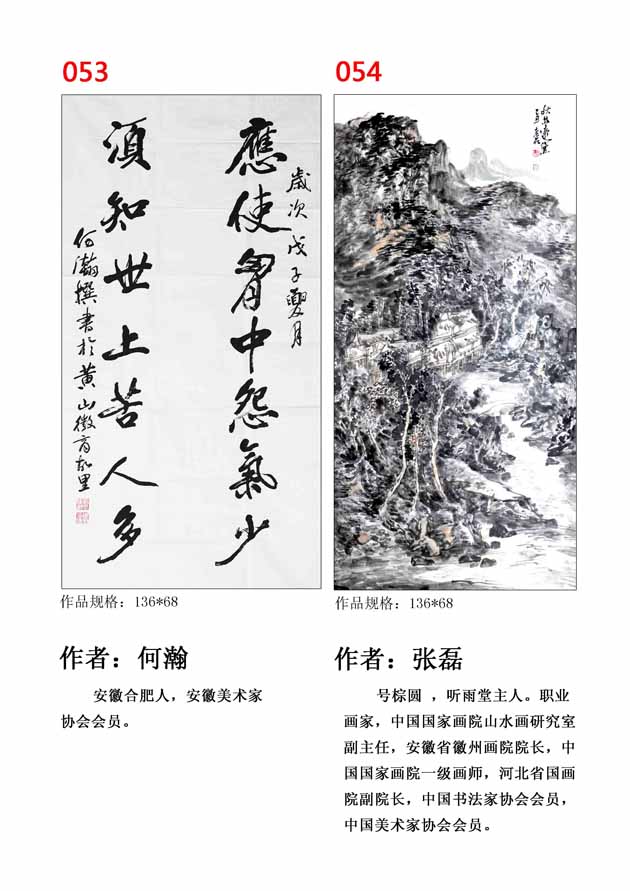 053
應使胸中怨氣少
歲次戊子夏月
須知世上苦人多
何瀚撰書於黄山徽商故里
作品规格：136*68
作者：何瀚
安徽合肥人，安徽美术家
协会会员。
054
作品规格：136*68
作者：张磊
号棕圆 ，听雨堂主人。职业
画家，中国国家画院山水画研究室
副主任，安徽省徽州画院院长，中
国国家画院一级画师，河北省国画
院副院长，中国书法家协会会员，
中国美术家协会会员。